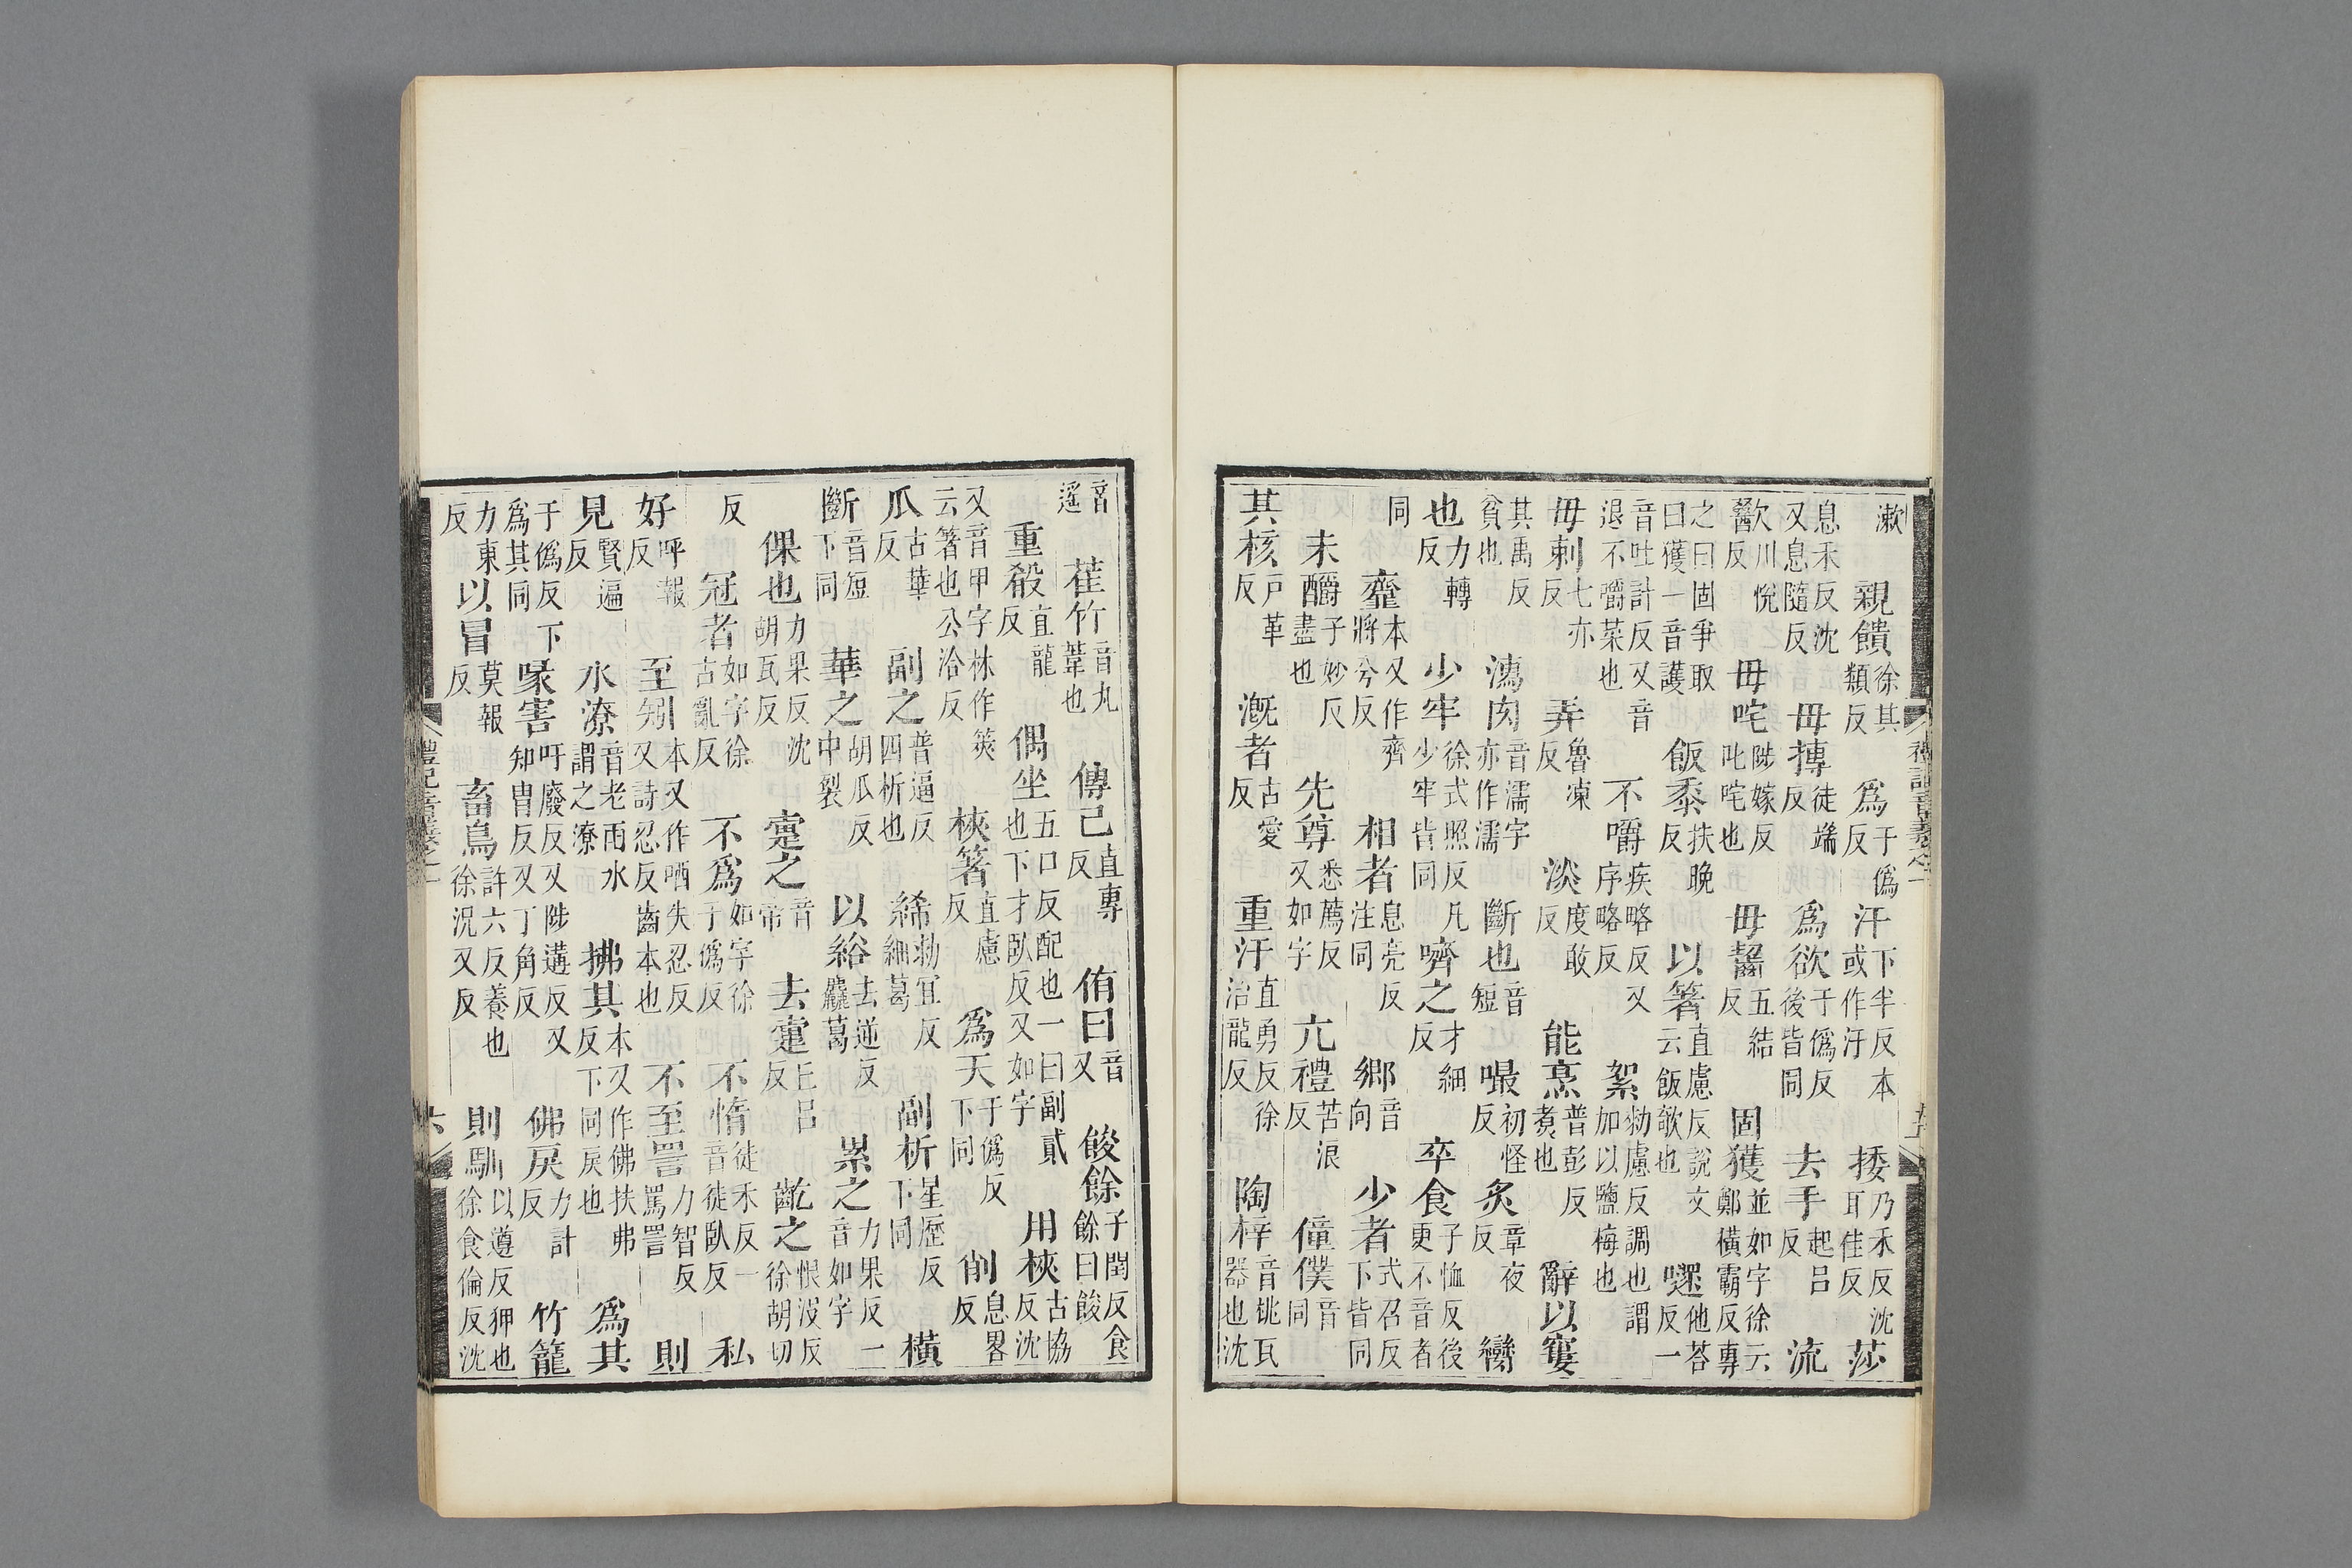 漱 親饋徐其類反 爲于僞反 汗下半反本或作汙 捼乃禾反沈耳佳反 莎
息禾反沈又息隨反 毋摶徒端反 爲欲于僞反後皆同 去手起呂反 流
歠川悅反 毋咤陟嫁反叱咤也 毋齧五結反 固獲並如字徐云鄭橫霸反專
之曰固爭取曰獲一音護 飯黍扶晚反 以箸直慮反說文云飯欹也 嚃他荅反一
音吐計反又音退不嚼菜也 不嚼疾略反又序略反 絮勑慮反調也謂加以鹽梅也
毋刺七亦反 弄魯凍反 淡度敢反 能烹普彭反煑也 辭以窶
其禹反貧也 濡肉音濡字亦作濡 斷也音短 嘬初怪反 炙章夜反 臠
也力轉反 少牢徐式照反凡少牢皆同 嚌之才細反 卒食子恤反後更不音者
同 齏本又作齊將兮反 相者息亮反注同 鄉音向 少者式召反下皆同
未釂子妙反盡也 先尊悉薦反又如字 亢禮苦浪反 僮僕音同
其核戶革反 漑者古愛反 重汗直勇反徐治龍反 陶梓音桃瓦器也沈
禮記音義之一
音遥 萑竹音丸葦也 傳己直專反 侑曰音又 餕餘子閏反食餘曰餕
重殽直龍反 偶坐五口反配也一曰副貳也下才臥反又如字 用梜古協反沈
又音甲字林作筴云箸也公洽反 梜箸直慮反 爲天于僞反下同 削息畧反
瓜古華反 副之普逼反四析也 絺勑宜反細葛 副析星歷反下同 橫
斷音短下同 華之胡瓜反中裂 以綌去逆反麤葛 累之力果反一音如字
倮也力果反沈胡瓦反 疐之音帝 去疐上呂反 齕之恨沒反徐胡切
反 冠者如字徐古亂反 不爲如字徐于僞反 不惰徒禾反一音徒臥反 私
好呼報反 至矧本又作哂失忍反又詩忍反齒本也 不至詈力智反罵詈 則
見賢遍反 水潦音老雨水謂之潦 拂其本又作佛扶弗反下同戾也 爲其
于僞反下爲其同 喙害吁廢反又陟遘反又知冑反又丁角反 佛戾力計反 竹籠
力東反 以冒莫報反 畜鳥許六反養也徐況又反 則馴以遵反狎也徐食倫反沈
禮記音義之一 六